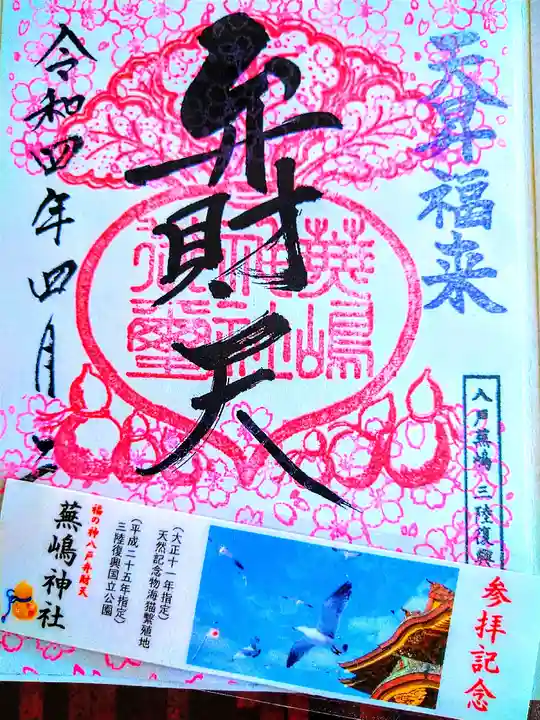 天昇福来
八戸蕪嶋 三陸復興
弁財天
蕪嶋
神社
御璽
令和四年四月二
参拝記念
(大正十一年指定)
天然記念物海猫繁殖地
(平成二十五年指定)
三陸復興国立公園
福の神八戸弁財天
蕪嶋神社